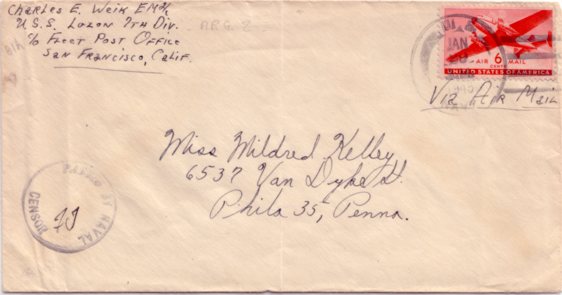 Charles E. Weik EM3/c
U.S.S. Luzon 7th Div.
c/o Fleet Post Office
San Francisco, Calif.
JAN
AIR 6 MAIL
CENTS
UNITED STATES OF AMERICA
Via Air Mail
Miss Mildred Kelley
6537 Van Dyke St.
Phila 35, Penna.
PASSED BY NAVAL
CENSOR